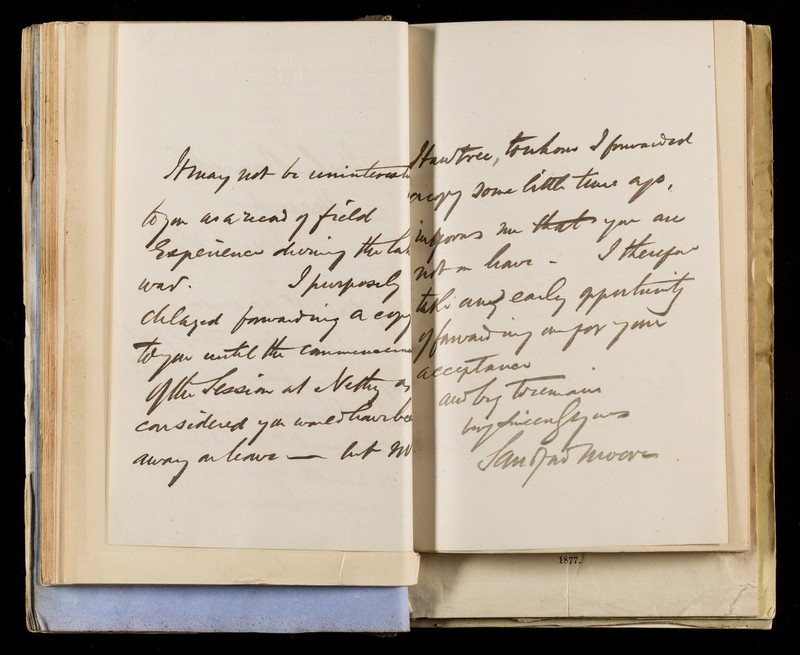 It may not be uninteresti
to you as a record of field
Experience during the late
war. I purposely
delayed forwarding a copy
to you until the commencemen
of the Session at Netley as
considered you would have be
away on leave — but Mr
Hawtree, to whom I forwarded
a copy some little time ago,
informs me that you are
not on leave - I therefore
take an early opportunity
of forwarding one for your
acceptance
and beg to remain
very sincerely yours
Sandford Moore
1877.